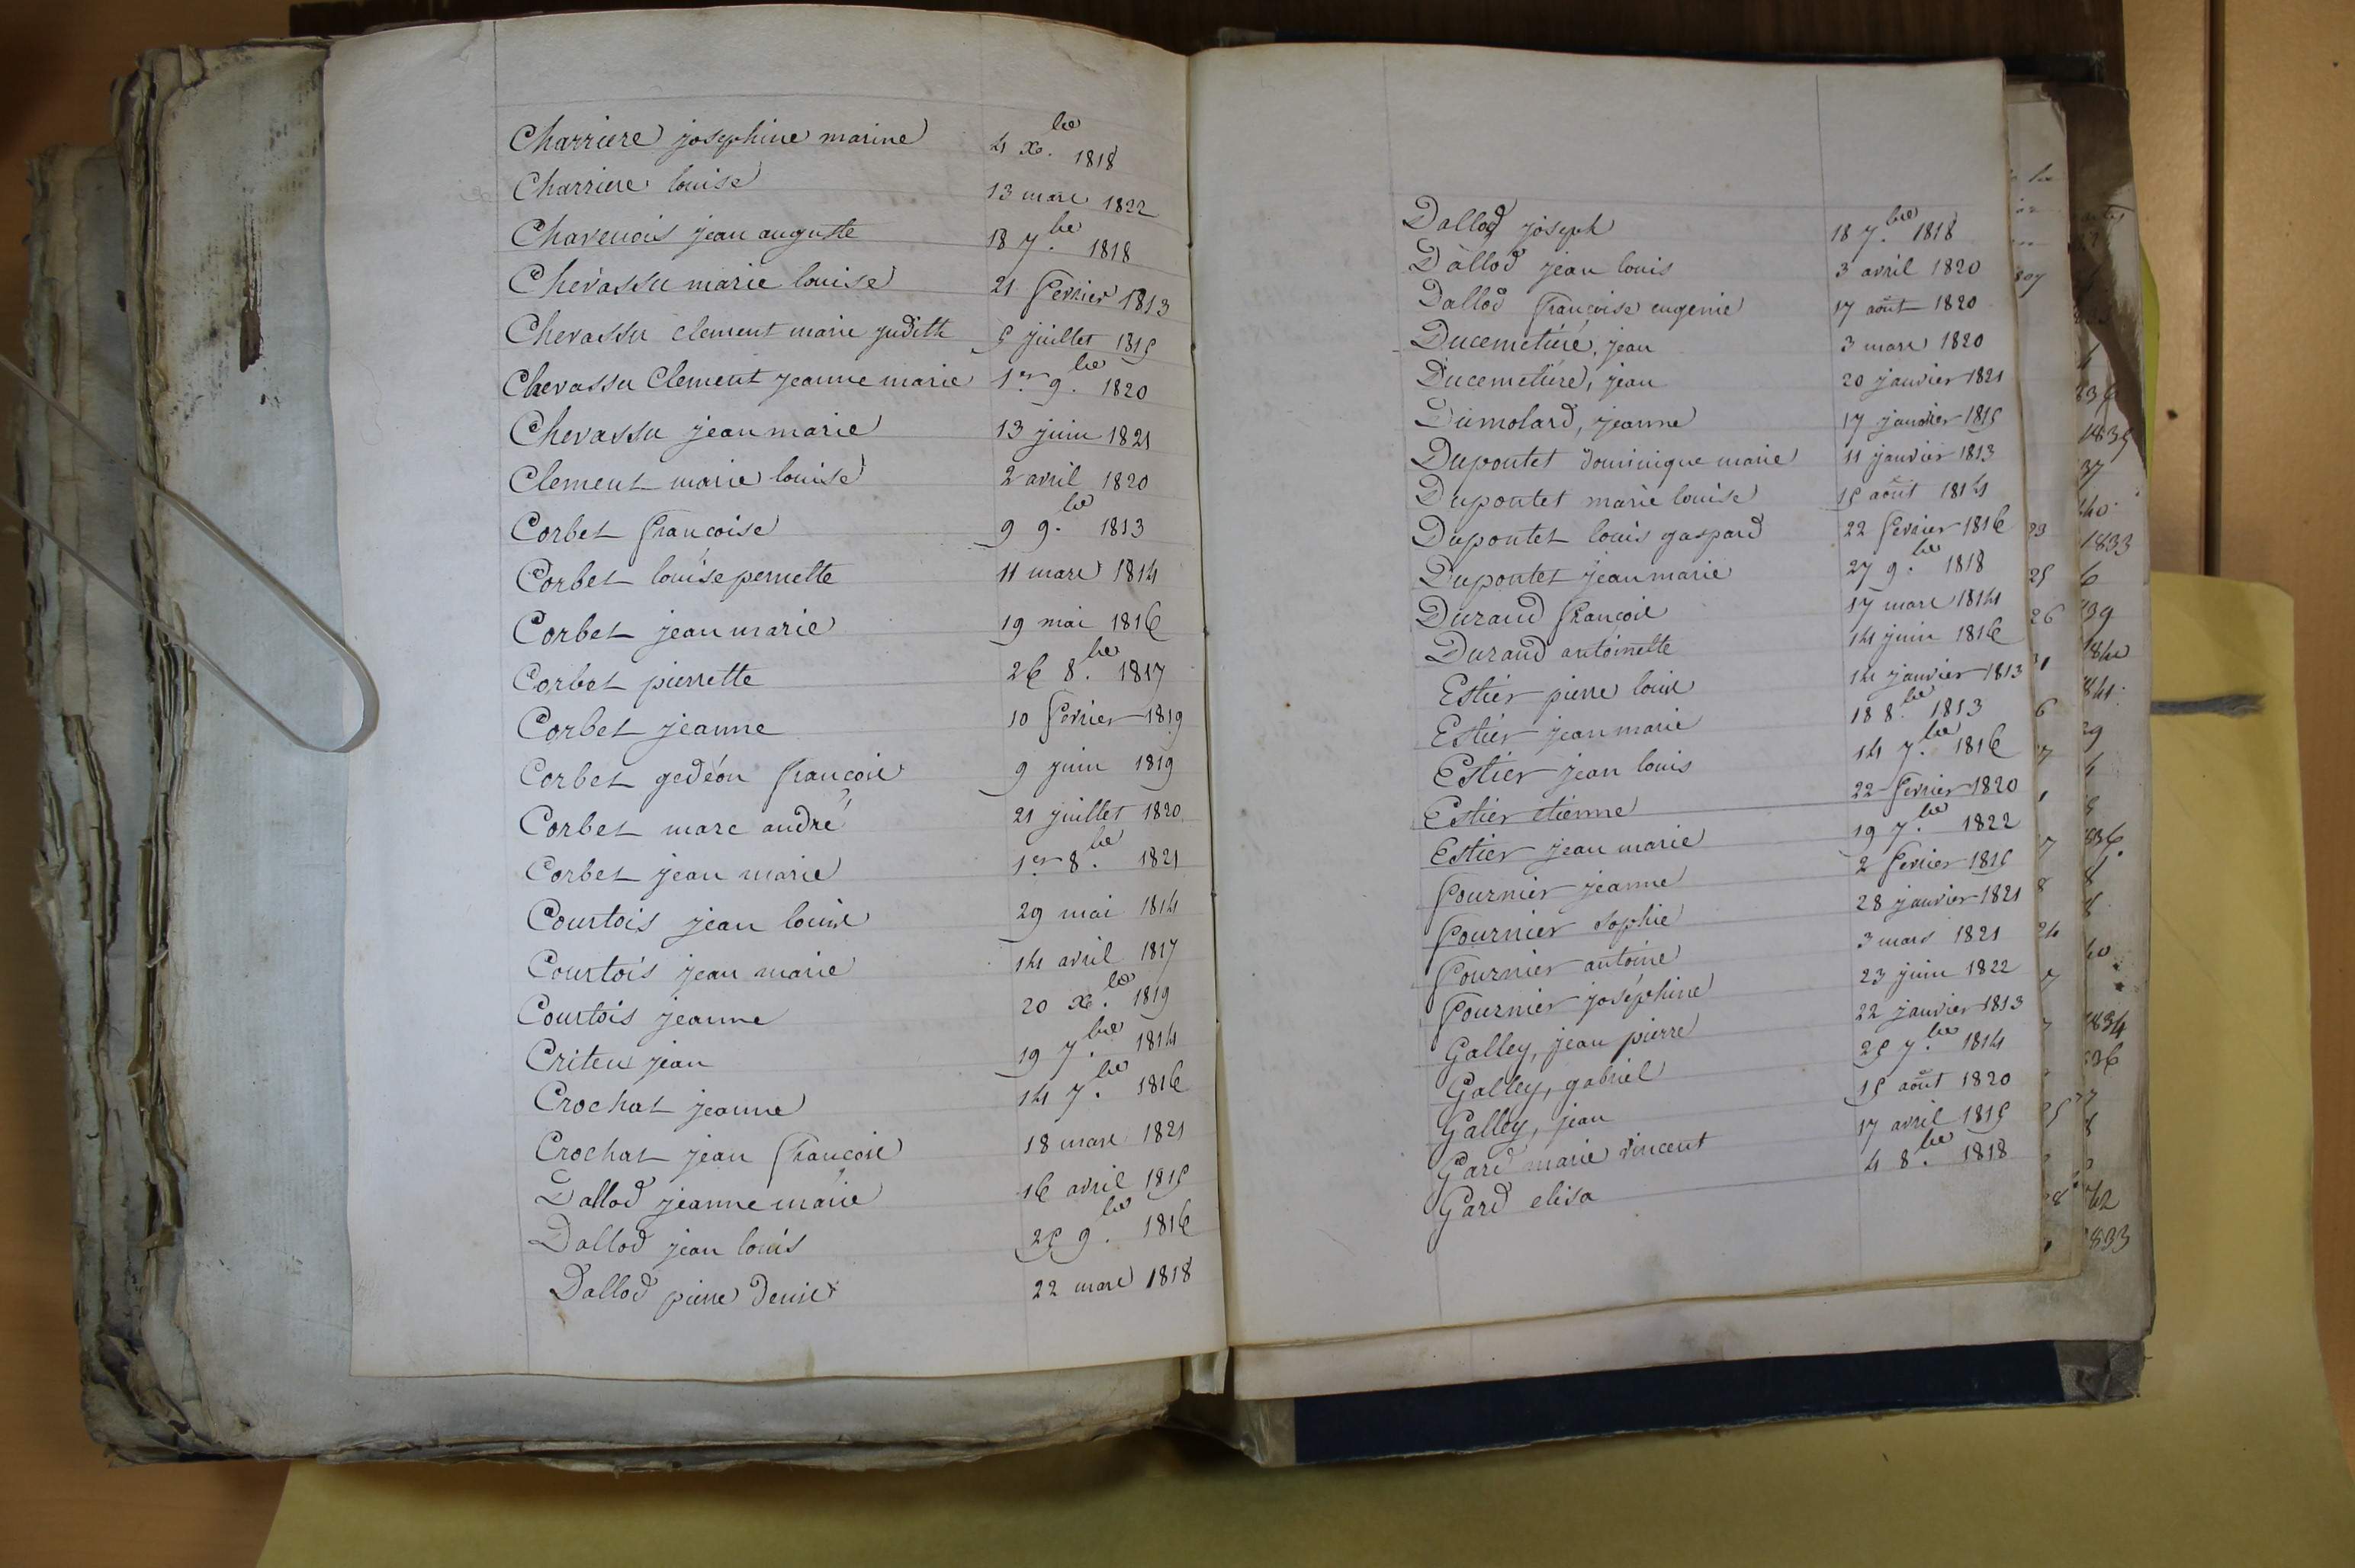 Charriere josephine marine 4 xbre. 1818
Charriere louise 13 mars 1822
Chavenois jean auguste 18 7.bre 1818
Chevassu marie louise 21 fevrier 1813
Chevassu clement marie judith 5 juillet 1815
Chevassu Clement jeanne marie 1er 9.bre 1820
Chevassu jean marie 13 juin 1821
Clement marie louise 2 avril 1820
Corbet francoise 9 9.bre 1813
Corbet louise pernette 11 mars 1814
Corbet jean marie 19 mai 1816
Corbet pierrette 26 8.bre 1817
Corbet jeanne 10 fevrier 1819
Corbet gedéon françois 9 juin 1819
Corbet marc andré 21 juillet 1820
Corbet jean marie 1er 8.bre 1821
Courtois jean louis 29 mai 1814
Courtois jean marie 14 avril 1817
Courtois jeanne 20 xbre. 1819
Criteu jean 19 7.bre 1814
Crochat jeanne 14 7.bre 1816
Crochat jean françois 18 mars 1821
Dallod jeanne marie 16 avril 1815
Dallod jean louis 25 9.bre 1816
Dallod pierre denis 22 mars 1818
Dallod joseph 18 7.bre 1818
Dallod jean louis 3 avril 1820
Dallod françoise eugenie 17 août 1820
Ducemetiére, jean 3 mars 1820
Ducemetiére, jean 20 janvier 1821
Dumolard, jeanne 17 janvier 1815
Dupontet dominique marie 11 janvier 1813
Dupontet marie louise 15 août 1814
Dupontet louis gaspard 22 fevrier 1816
Dupontet jean marie 27 9.bre 1818
Durand françois 17 mars 1814
Durand antoinette 14 juin 1816
Estier pierre louis 14 janvier 1813
Estier jean marie 18 8.bre 1813
Estier jean louis 14 7.bre 1816
Estier etienne 22 fevrier 1820
Estier jean marie 19 7.bre 1822
Fournier jeanne 2 fevrier 1815
Fournier sophie 28 janvier 1821
Fournier antoine 3 mars 1821
Fournier joséphine 23 juin 1822
Galley, jean pierre 22 janvier 1813
Galley, gabriel 25 7.bre 1814
Galley, jean 15 août 1820
Gard marie vincent 17 avril 1815
Gard elisa 4 8.bre 1818
1835
37
1833
1834